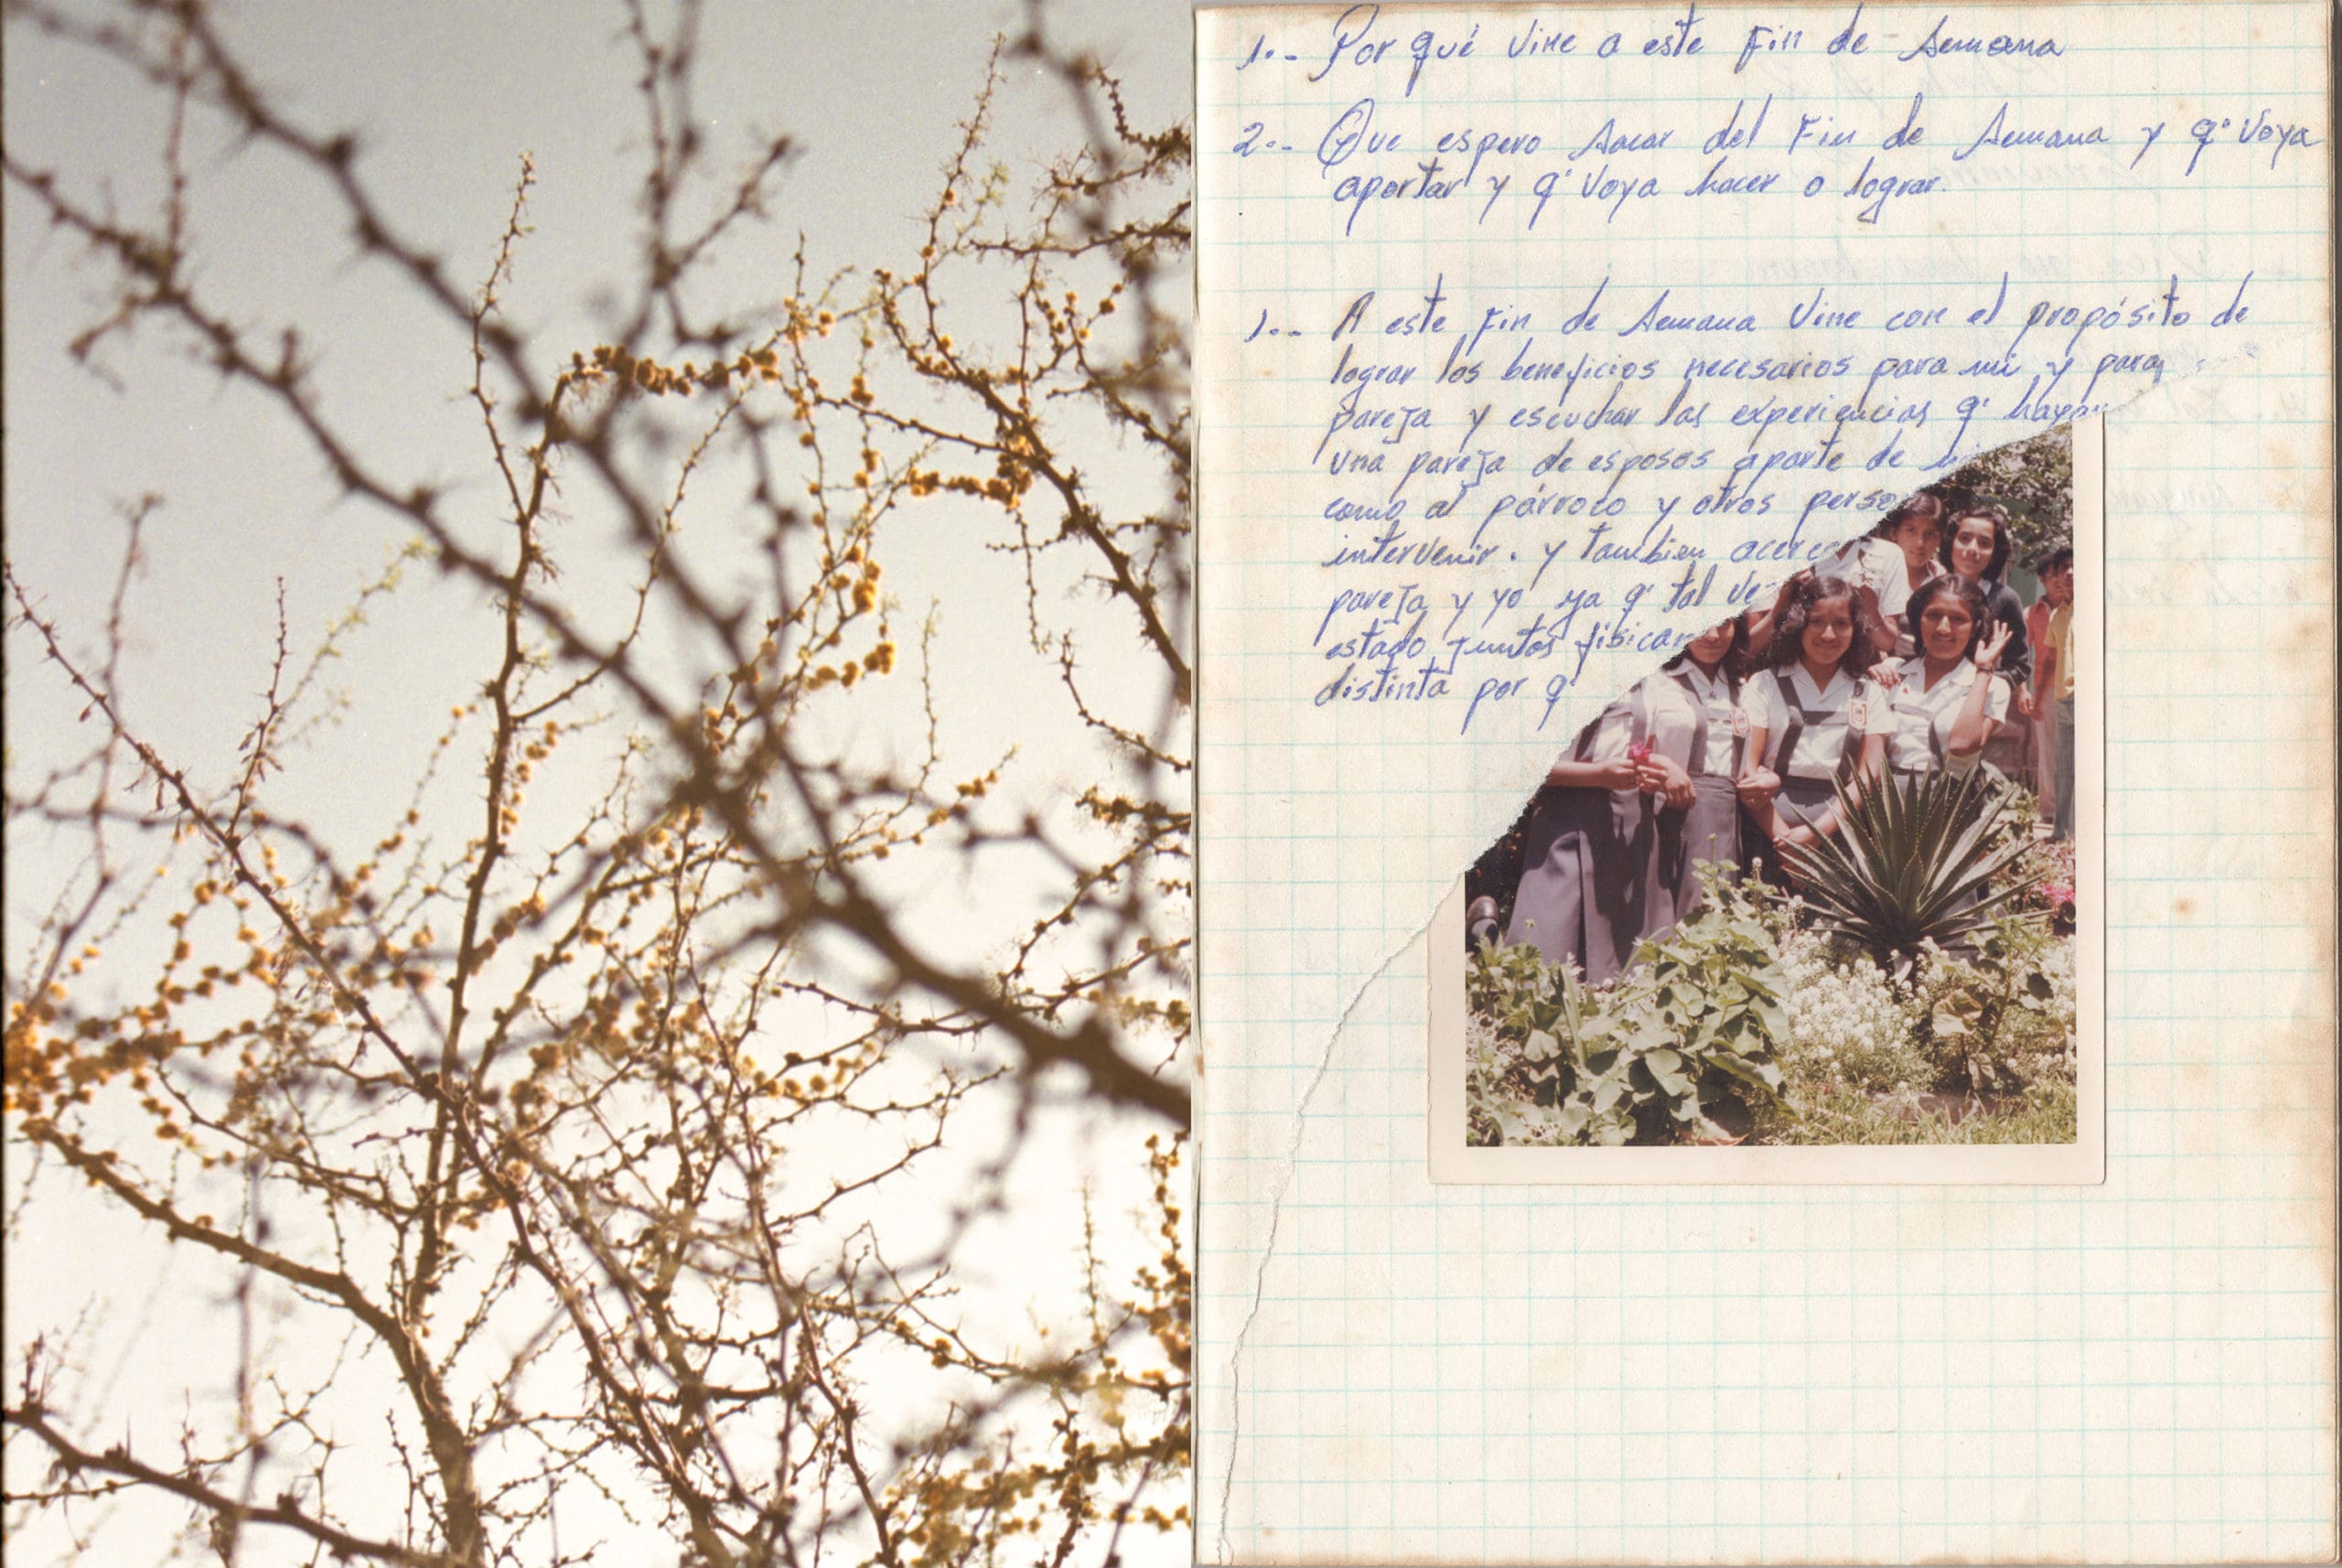 1.- Por qué vine a este Fin de Semana
2.- Que espero Sacar del Fin de Semana y q' Voya
aportar y q' Voya hacer o lograr.
1.- A este Fin de Semana Vine con el propósito de
lograr los beneficios necesarios para mi y para
pareja y escuchar las experiencias q' hayan
una pareja de esposos aparte de
como al párroco y otros perso
intervenir. y tambien acerca
pareja y yo ya q' tal vez
estado juntos fisicam
distinta por q'